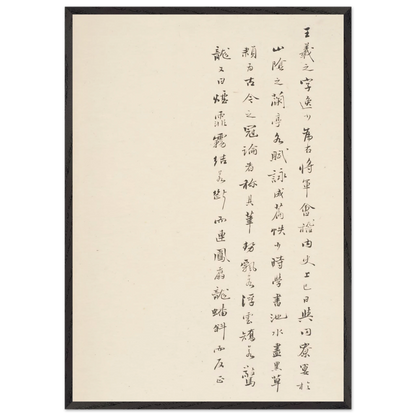 王羲之字逸少為右將軍會稽內史上巳日與同寮宴於
山陰之蘭亭各賦詠成篇帙少時學書池水盡黑草
隸為古今之冠論者称其筆勢飄若浮雲矯若驚
龍又曰煙霏露結若斷而連鳳翥龍蟠斜而反正